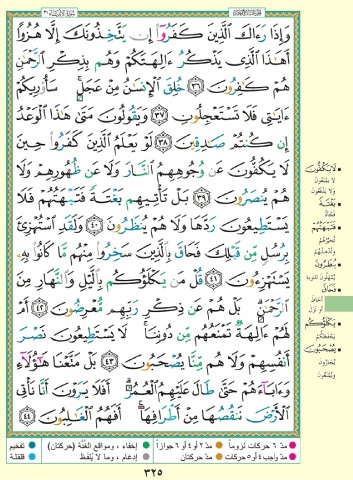 وَإِذَا رَءَاكَ ٱلَّذِينَ كَفَرُوٓا۟ إِن يَتَّخِذُونَكَ إِلَّا هُزُوًا
أَهَٰذَا ٱلَّذِى يَذْكُرُ ءَالِهَتَكُمْ وَهُم بِذِكْرِ ٱلرَّحْمَٰنِ
هُمْ كَٰفِرُونَ ٣٦ خُلِقَ ٱلْإِنسَٰنُ مِنْ عَجَلٍ ۚ سَأُو۟رِيكُمْ
ءَايَٰتِى فَلَا تَسْتَعْجِلُونِ ٣٧ وَيَقُولُونَ مَتَىٰ هَٰذَا ٱلْوَعْدُ
إِن كُنتُمْ صَٰدِقِينَ ٣٨ لَوْ يَعْلَمُ ٱلَّذِينَ كَفَرُوا۟ حِينَ
لَا يَكُفُّونَ عَن وُجُوهِهِمُ ٱلنَّارَ وَلَا عَن ظُهُورِهِمْ وَلَا
هُمْ يُنصَرُونَ ٣٩ بَلْ تَأْتِيهِم بَغْتَةً فَتَبْهَتُهُمْ فَلَا
يَسْتَطِيعُونَ رَدَّهَا وَلَا هُمْ يُنظَرُونَ ٤٠ وَلَقَدِ ٱسْتُهْزِئَ
بِرُسُلٍ مِّن قَبْلِكَ فَحَاقَ بِٱلَّذِينَ سَخِرُوا۟ مِنْهُم مَّا كَانُوا۟ بِهِۦ
يَسْتَهْزِءُونَ ٤١ قُلْ مَن يَكْلَؤُكُم بِٱلَّيْلِ وَٱلنَّهَارِ مِنَ
ٱلرَّحْمَٰنِ ۗ بَلْ هُمْ عَن ذِكْرِ رَبِّهِم مُّعْرِضُونَ ٤٢ أَمْ
لَهُمْ ءَالِهَةٌ تَمْنَعُهُم مِّن دُونِنَا ۚ لَا يَسْتَطِيعُونَ نَصْرَ
أَنفُسِهِمْ وَلَا هُم مِّنَّا يُصْحَبُونَ ٤٣ بَلْ مَتَّعْنَا هَٰٓؤُلَآءِ
وَءَابَآءَهُمْ حَتَّىٰ طَالَ عَلَيْهِمُ ٱلْعُمُرُ ۗ أَفَلَا يَرَوْنَ أَنَّا نَأْتِى
ٱلْأَرْضَ نَنقُصُهَا مِنْ أَطْرَافِهَآ ۚ أَفَهُمُ ٱلْغَٰلِبُونَ ٤٤
لَا يَكُفُّونَ
بَغْتَةً
فَتَبْهَتُهُمْ
يُنظَرُونَ
فَحَاقَ
يَكْلَؤُكُم
يُصْحَبُونَ
مدّ ٦ حركات لزوماً مدّ ٢ أو ٤ أو ٦ جوازاً إخفاء، ومواقع الغنّة (حركتان) تفخيم
مدّ واجب ٤ أو ٥ حركات مدّ حركتان إدغام، وما لا يُلفَظ قلقلة
٣٢٥